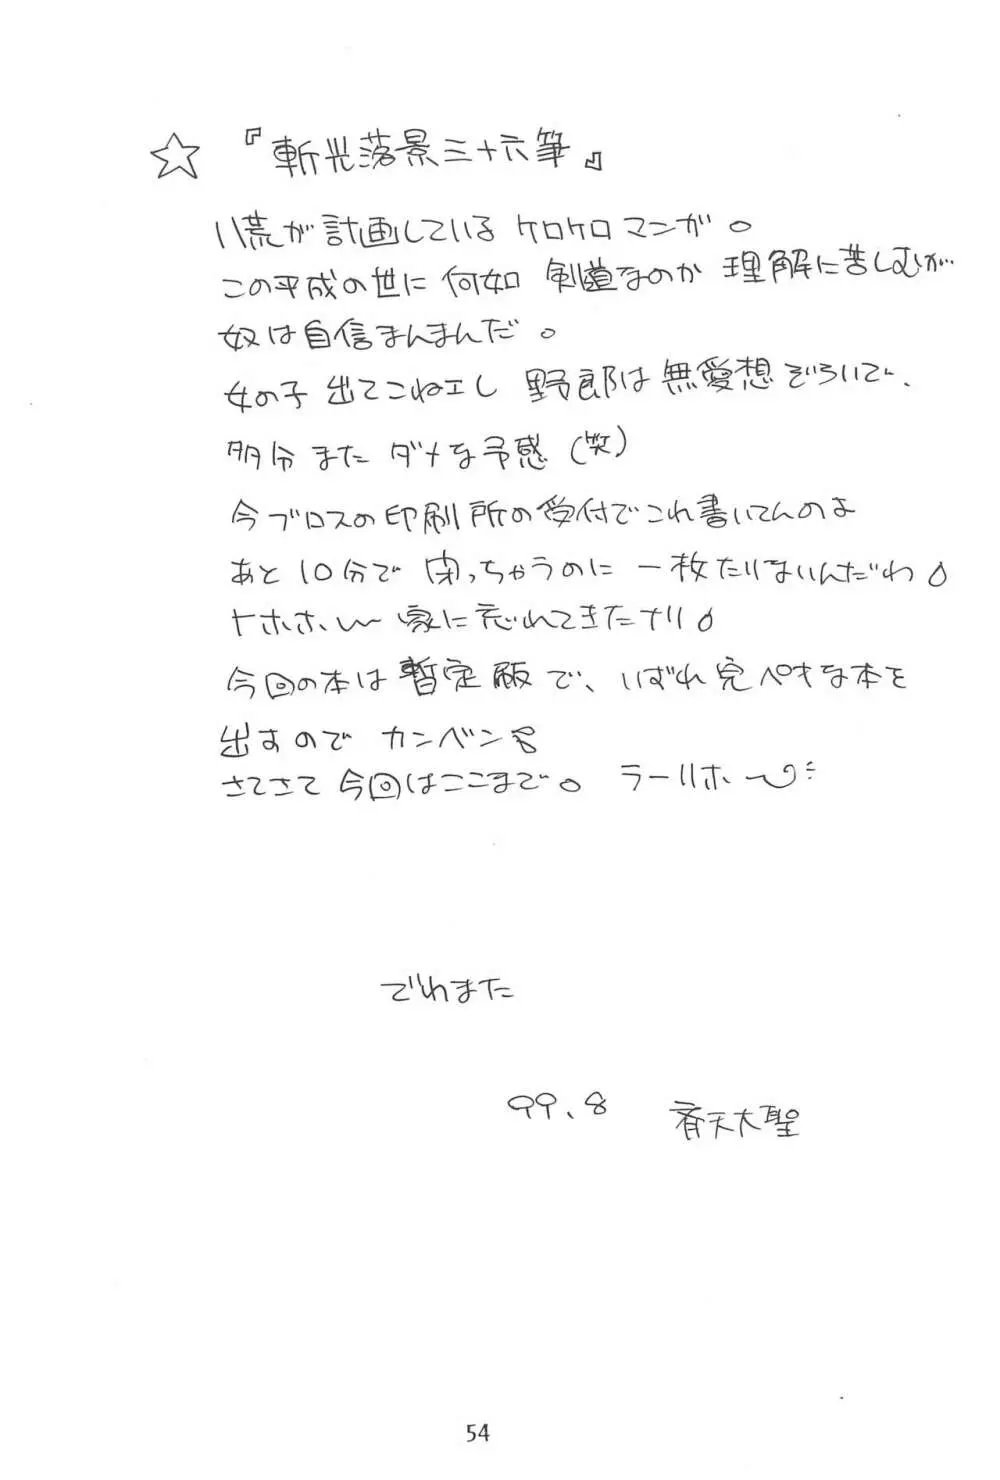 ☆ 『斬光落景三十六筆』
八荒が計画している ケロケロマンガ。
この平成の世に 何如 剣道なのか 理解に苦しむが…
奴は自信まんまんだ。
女の子 出てこねエし 野郎は無愛想ぞろいで、
多分 また ダメな予感(笑)
今ブロスの印刷所の受付でこれ書いてんのよ
あと10分で 閉っちゃうのに 一枚たりないんだわ
トホホ、〜 家に忘れてきたナリ
今回の本は暫定版で、いずれ完ペキな本を
出すので カンベン
さてさて 今回はここまで。 ラーリホー
でわまた
99.8 斉天大聖
54